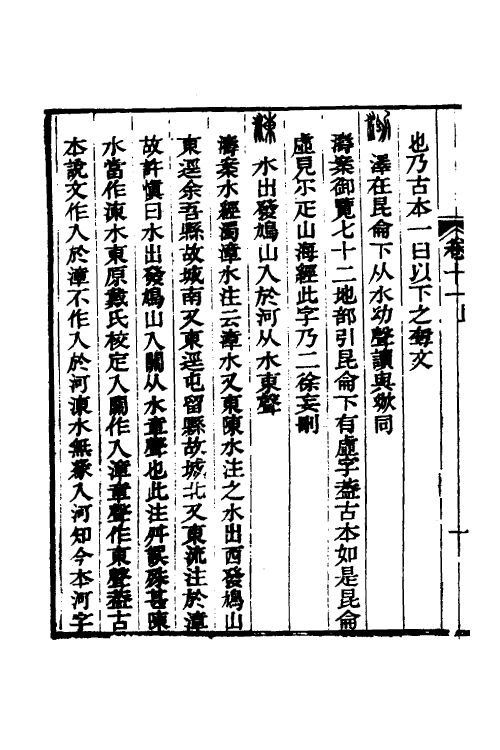 卷十一上
一
也乃古本一曰以下之奪文
泑 澤在昆侖下从水幼聲讀與㓜同
濤案御覽七十二地部引昆侖下有虛字蓋古本如是昆侖
虛見尒疋山海經此字乃二徐妄刪
涷 水出發鳩山入於河从水東聲
濤案水經濁漳水注云漳水又東陳水注之水出西發鳩山
東逕余吾縣故城南又東逕屯留縣故城北又東流注於漳
故許慎曰水出發鳩山入關从水章聲也此注舛誤殊甚陳
水當作涷水東原戴氏校定入關作入漳章聲作東聲蓋古
本說文作入於漳不作入於河涷水無緣入河知今本河字